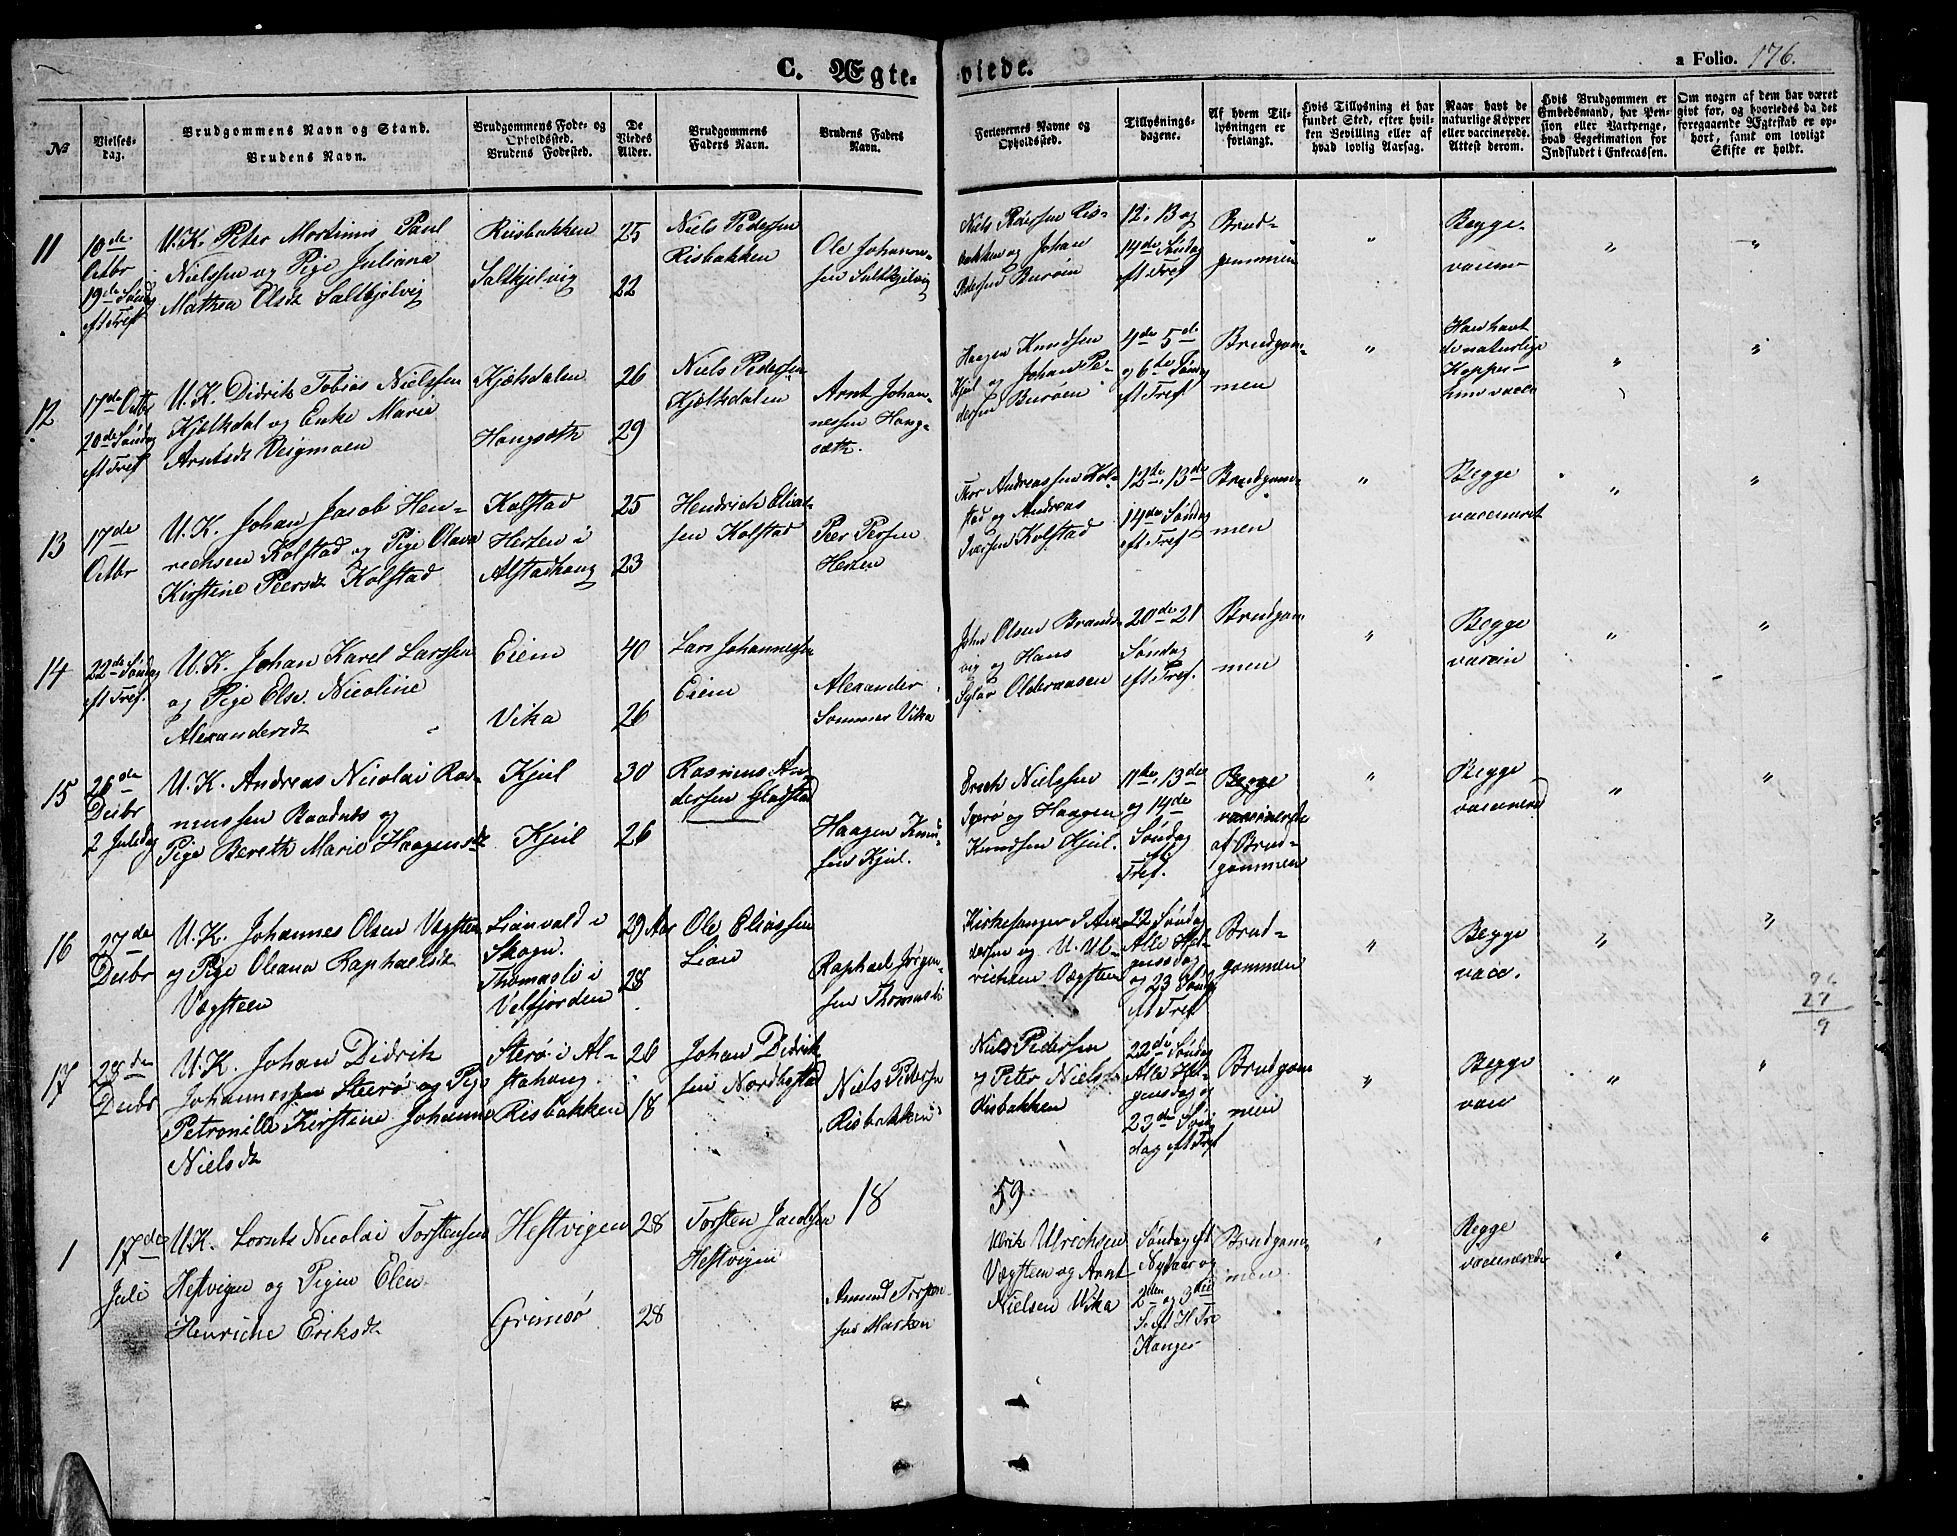 C. Ægteviede.
a Folio. 176.
No
Vielses-
dag.
Brudgommens Navn og Stand.
Brudens Navn.
Brudgommens Føde- og
Opholdssted.
Brudens Fødested.
De
Viedes
Alder.
Brudgommens
Faders Navn.
Brudens Faders
Navn.
Forlovernes Navne og
Opholdssted.
Tillysnings-
dagene.
Af hvem Til-
lysningen er
forlangt.
Hvis Tillysning ei har
fundet Sted, efter hvil-
ken Bevilling eller af
hvad lovlig Aarsag.
Naar havt de
naturlige Kopper
eller vaccinerede.
Attest derom.
Hvis Brudgommen er
Embedsmand, har Pen-
sion eller Vartpenge,
hvad Legitimation for
Indskudet i Enkecassen.
Om nogen af dem har været
gift før, og hvorledes da det
foregaaende Ægteskab er op-
hørt, samt om lovligt
Skifte er holdt.
11
10de
Octbr
19de Søndag
eft Tref
U.K. Peter Mortinus Paul
Nielssen og Pige Juliana
Mathea Olsdt Saltkjelvig
Riisbakken
Saltkjelvig
25
22
Niels Pedersen
Risbakken
Ole Johann-
sen Saltkjelvig
Niels Ris-
bakken og Johan
Pedersen Burøen
12, 13 og
14de Søndag
eft Tref
Brud-
gommen
"
Begge
vaccin
"
"
12
17de Octbr
20de Søndag
eft Tref
U.K. Didrik Tobias Nielssen
Kjelkdal og Enke Marie
Arntsdt Veigmoen
Kjækdalen
Hongsæth
26
29
Niels Pedersen
Kjelkdalen
Arnt Johan-
nessen Hong-
sæth.
Haagen Knudsen
Kjul og Johan Pe-
dersen Burøen
4de 5de
og 6te Søndag
eft Tref
Brudgom-
men
"
Han havt
de naturlige
Kopper
hun vaccin
"
"
13
17de
Octbr
U.K. Johan Jacob Hen-
richsen Kolstad og Pige Olava
Kirstine Peersdt Kolstad
Kolstad
Herten i
Alstadhoug
25
23
Hendrich Elias-
sen Kolstad
Peer Persen
Herten
Thor Andreassen Kol-
stad og Andreas
Iversen Kolstad
12de, 13de
14de Søndag
eft Tref
Brudgom-
men
"
Begge
vaccineret
"
"
14
22de Søndag
eft Tref.
U.K. Johan Karel Larssen
og Pige Else Nicoline
Alexandersdt
Eiem
Vika
40
26
Lars Johannessen
Eiem
Alexander
Sommer Vika
John Olsen Brands-
vig og Hans
Olderaasen
20de 21
Søndag
eft Tref.
Brudgom
men
"
Begge
vaccin
"
"
15
26de
Decbr
2 Juledag
U.K. Andreas Nicolai Ras-
mussen Baadnes og
Pige Bereth Marie Haagensdt
Kjul
Kjul
30
26
Rasmus An-
dersen Gladstad
Haagen Knud-
sen Kjul.
Erich Nielssen
og Haagen
Knudsen Kjul.
11te, 13de
og 14de
Søndag
Af
Tref.
Begge
vaccinerede
af Brud-
gommen
"
Begge
vaccinered
"
"
16
27de
Decbr
U.K. Johannes Olsen Vægsteen
og Pige Oleana Raphaelsdt
Vægsteen
Lianvald i
Skogn.
Thomasli i
Velfjorden
29 Aar
28
Ole Eliassen
Lian
Raphael Jørgen-
sen Thomasli
Kirkesanger P An-
dersen og U. Ul-
richsen Vægsteen
22 Søndag
Alle Hel-
gensdag
og 23 Søndag
Af Tref
Brud-
gommen
"
Begge
vacc.
"
"
17
28de
Decbr
U.K. Johan Didrik
Johannessen Sterø og Pige
Petronille Kirstine Johanne
Nielsdt
Sterø i Al-
stahoug
Risbakken
26
18
Johan Didrik
sen Nordbostad
Niels Pedersen
Risbakken
Niels Pedersen
og Peter Nielssen
Risbakken
22de Søndag
Alle Hel-
gensdag og
23de Søn-
dag eft Tref
Brudgom
men
"
Begge
vacc
"
"
18 59
1
17de
Juli
U.K. Lornts Nicolai Torstensen
Hestvigen og Pigen Elen
Henriche Eriksdt
Hestvigen
Grimsø
28
28
Torsten Jacobsen
Hestvigen
Amund
Ulrik Ulrichsen
Vægsteen og Arnt
Nielsen Vika
Søndag eft
Nytaar og
2den og 3die
S. eft H Tre
Konger
Brudgom-
men
"
Begge
vaccinerede
"
"
96
27
9